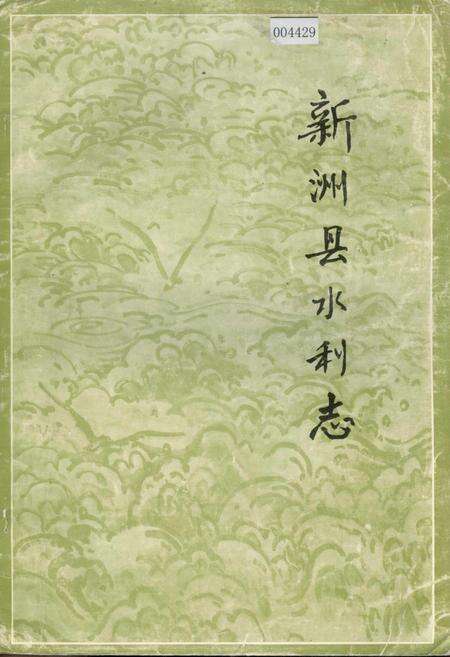 004429
新洲县水利志